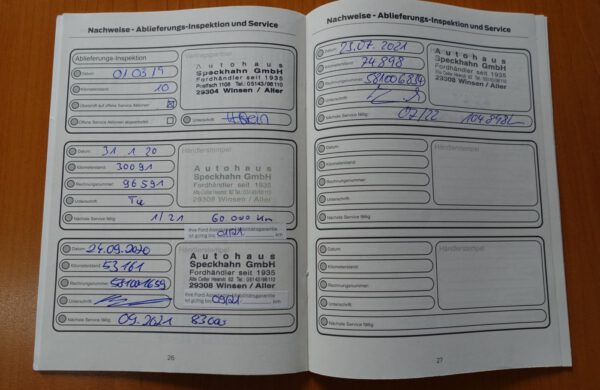 Nachweise - Ablieferungs-Inspektion und Service
Ablieferungs-Inspektion
Datum 01 03 19
Kilometerstand 10
Überprüft auf offene Service Aktionen
Offene Service Aktionen abgearbeitet
Unterschrift
Autohaus
Speckhahn GmbH
Fordhändler seit 1935
Postfach 1108 Tel.: 05143/98110
29304 Winsen / Aller
Datum 31 1 20
Kilometerstand 30091
Rechnungsnummer 96591
Unterschrift
Nächste Service fällig: 1/21 60.000 km
Händlerstempel
Autohaus
Speckhahn GmbH
Fordhändler seit 1935
29308 Winsen / Aller
Ihre Ford Assistance Mobilitätsgarantie
ist gültig bis 01/21 km
Datum 24.09.2020
Kilometerstand 53161
Rechnungsnummer
Unterschrift
Nächste Service fällig: 09.2021 83000
Autohaus
Speckhahn GmbH
Fordhändler seit 1935
29308 Winsen / Aller
Ihre Ford Assistance Mobilitätsgarantie
ist gültig bis 09/21 km
26
Nachweise - Ablieferungs-Inspektion und Service
Datum 23.07.2021
Kilometerstand 74898
Rechnungsnummer
Unterschrift
Nächste Service fällig: 07/22
Autohaus
Speckhahn GmbH
Fordhändler seit 1935
29308 Winsen / Aller
Datum
Kilometerstand
Rechnungsnummer
Unterschrift
Nächste Service fällig:
Händlerstempel
Datum
Kilometerstand
Rechnungsnummer
Unterschrift
Nächste Service fällig:
Händlerstempel
27